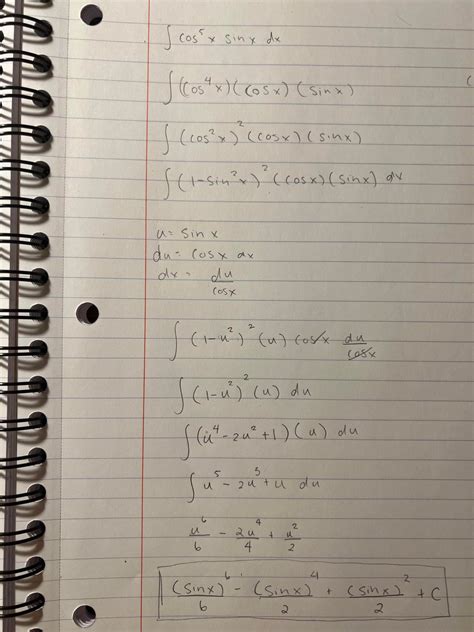 ∫ cos⁵x sinx dx
∫ (cos⁴x)(cosx)(sinx)
∫ (cos²x)² (cosx)(sinx)
∫ (1-sin²x)² (cosx)(sinx) dx
u = sin x
du = cosx dx
dx = du/cosx
∫ (1-u²)² (u) cosx du/cosx
∫ (1-u²)² (u) du
∫ (u⁴ - 2u² + 1)(u) du
∫ u⁵ - 2u³ + u du
u⁶/6 - 2u⁴/4 + u²/2
(sinx)⁶/6 - (sinx)⁴/2 + (sinx)²/2 + C